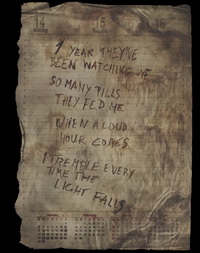 14 15 16
1 YEAR THEY'VE
BEEN WATCHING ME
SO MANY PILLS
THEY FED ME
WHEN A LOUD
HOUR COMES
I TREMBLE EVERY
TIME THE
LIGHT FALLS